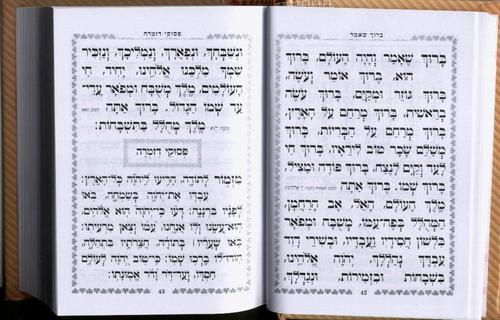 ברוך שאמר
בָּרוּךְ שֶׁאָמַר וְהָיָה הָעוֹלָם, בָּרוּךְ
הוּא, בָּרוּךְ אוֹמֵר וְעֹשֶׂה,
בָּרוּךְ גּוֹזֵר וּמְקַיֵּם, בָּרוּךְ עֹשֶׂה
בְרֵאשִׁית, בָּרוּךְ מְרַחֵם עַל הָאָרֶץ,
בָּרוּךְ מְרַחֵם עַל הַבְּרִיּוֹת, בָּרוּךְ
מְשַׁלֵּם שָׂכָר טוֹב לִירֵאָיו, בָּרוּךְ חַי
לָעַד וְקַיָּם לָנֶצַח, בָּרוּךְ פּוֹדֶה וּמַצִּיל,
בָּרוּךְ שְׁמוֹ. בָּרוּךְ אַתָּה
מֶלֶךְ הָעוֹלָם, הָאֵל, אָב הָרַחֲמָן,
הַמְהֻלָּל בְּפֶה עַמּוֹ, מְשֻׁבָּח וּמְפֹאָר
בִּלְשׁוֹן חֲסִידָיו וַעֲבָדָיו, וּבְשִׁירֵי דָוִד
עַבְדֶּךָ נְהַלֶּלְךָ, יְהֹוָה אֱלֹהֵינוּ,
בִּשְׁבָחוֹת וּבִזְמִירוֹת, וּנְגַדֶּלְךָ,
42
פסוקי דזמרה
וּנְשַׁבֵּחֲךָ, וּנְפָאֶרְךָ, וְנַמְלִיכְךָ, וְנַזְכִּיר
שִׁמְךָ מַלְכֵּנוּ אֱלֹהֵינוּ, יָחִיד, חֵי
הָעוֹלָמִים, מֶלֶךְ מְשֻׁבָּח וּמְפֹאָר עֲדֵי־
עַד שְׁמוֹ הַגָּדוֹל. בָּרוּךְ אַתָּה
מֶלֶךְ מְהֻלָּל בַּתִּשְׁבָּחוֹת:
פסוקי דזמרה
מִזְמוֹר לְתוֹדָה, הָרִיעוּ לַיהֹוָה כָּל־הָאָרֶץ:
עִבְדוּ אֶת־יְהֹוָה בְּשִׂמְחָה, בֹּאוּ
לְפָנָיו בִּרְנָנָה: דְּעוּ כִּי־יְהֹוָה הוּא אֱלֹהִים,
הוּא־עָשָׂנוּ וְלוֹ אֲנַחְנוּ, עַמּוֹ וְצֹאן מַרְעִיתוֹ:
בֹּאוּ שְׁעָרָיו בְּתוֹדָה, חֲצֵרֹתָיו בִּתְהִלָּה,
הוֹדוּ־לוֹ בָּרְכוּ שְׁמוֹ: כִּי־טוֹב יְהֹוָה לְעוֹלָם
חַסְדּוֹ, וְעַד־דֹּר וָדֹר אֱמוּנָתוֹ:
43